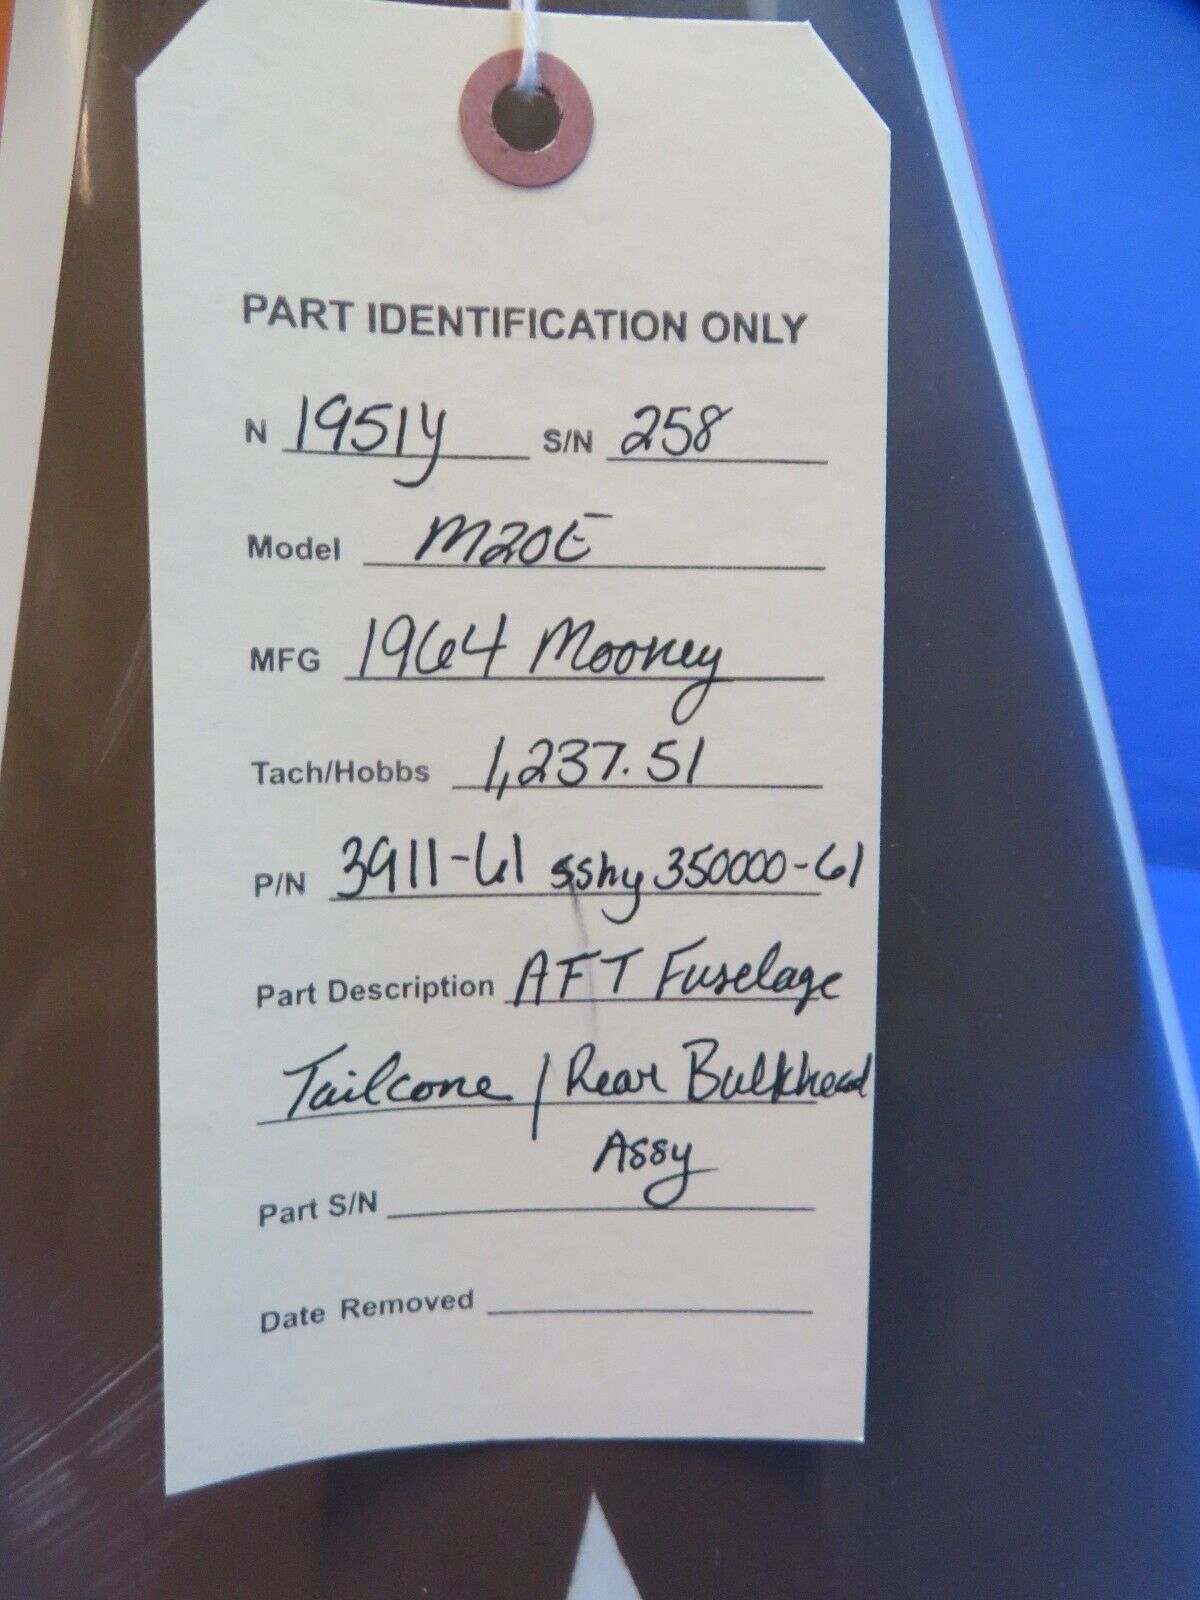 PART IDENTIFICATION ONLY
N 1951y S/N 258
Model M20E
MFG 1964 Mooney
Tach/Hobbs 1,237.51
P/N 3911-61 350000-61
Part Description AFT Fuselage
Tailcone / Rear Bulkhead
Assy
Part S/N
Date Removed